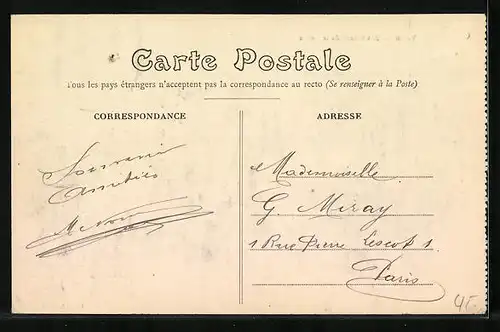 Carte Postale
Tous les pays étrangers n'acceptent pas la correspondance au recto (Se renseigner à la Poste)
CORRESPONDANCE
ADRESSE
Souvenir
Amitiés
Mademoiselle
G. Miray
1 Rue Pierre Lescot 1
Paris